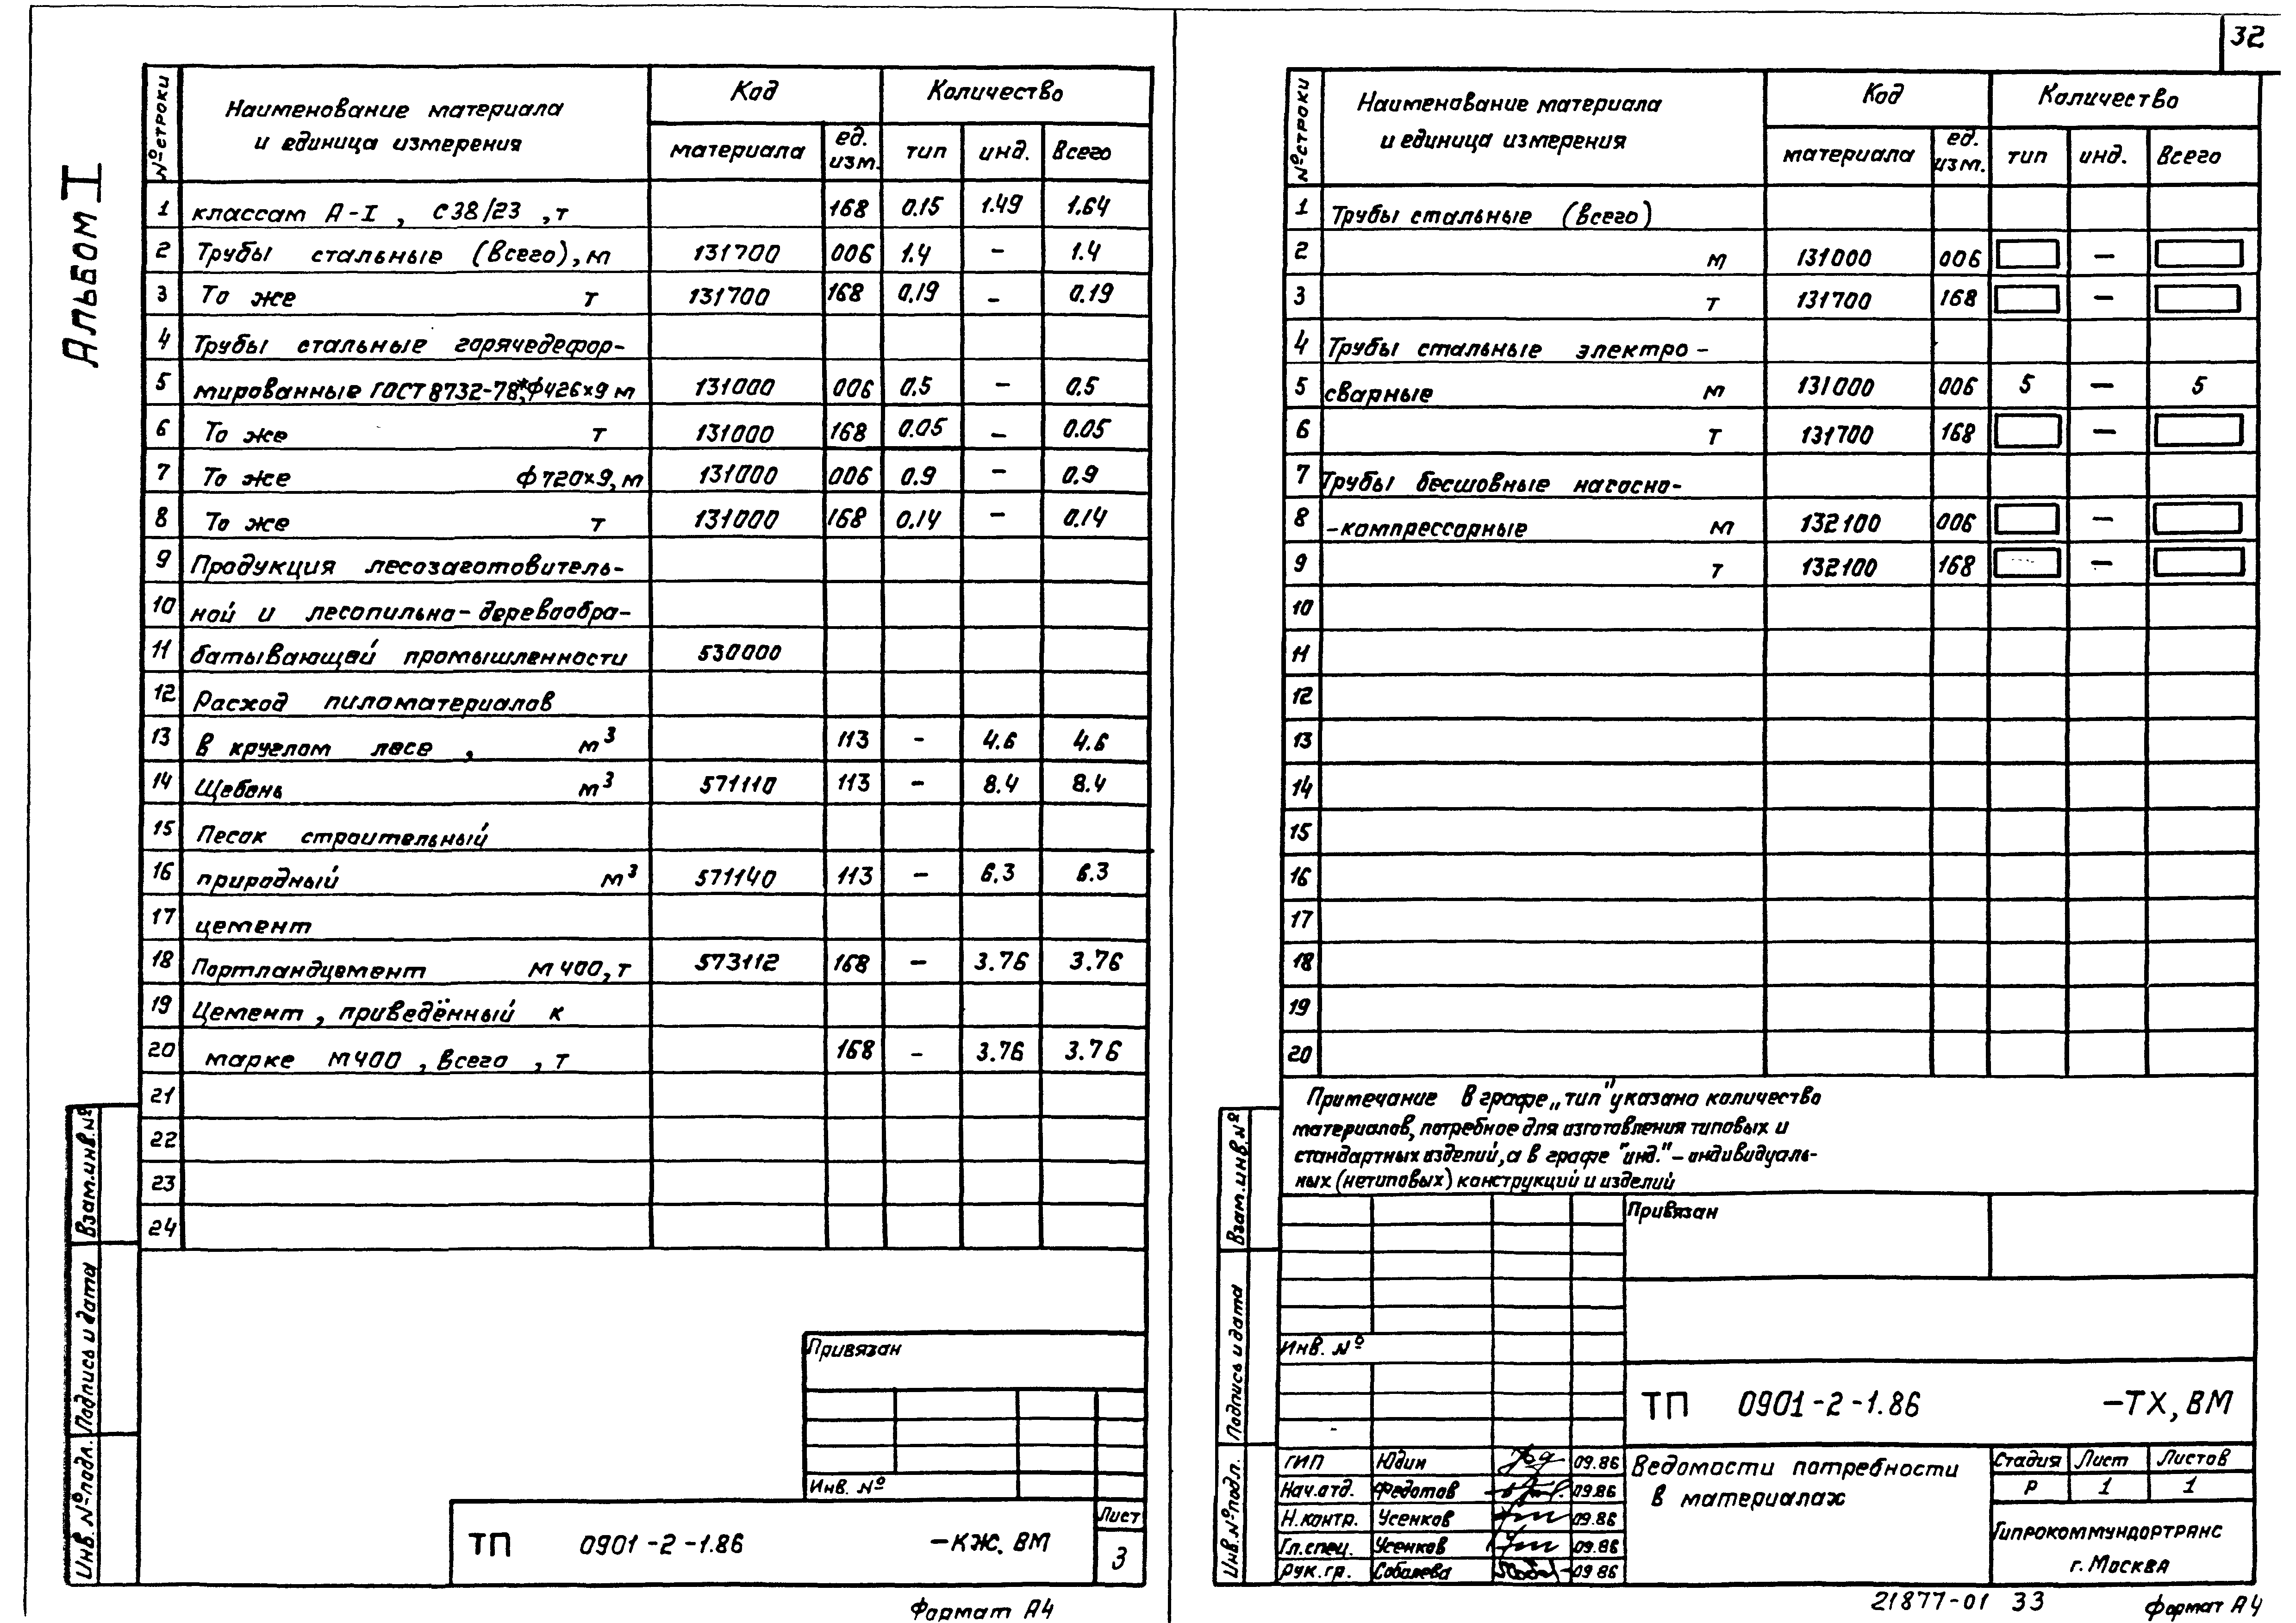 32
Альбом I
№ строки | Наименование материала и единица измерения | Код | Количество
материала | ед. изм. | тип | инд. | Всего
1 классам А-I, С38/23, т | 168 | 0.15 | 1.49 | 1.64
2 Трубы стальные (всего), м | 131700 | 006 | 1.4 | – | 1.4
3 То же т | 131700 | 168 | 0.19 | – | 0.19
4 Трубы стальные горячедефор-
5 мированные ГОСТ 8732-78*, ф426х9 м | 131000 | 006 | 0.5 | – | 0.5
6 То же т | 131000 | 168 | 0.05 | – | 0.05
7 То же ф720х9, м | 131000 | 006 | 0.9 | – | 0.9
8 То же т | 131000 | 168 | 0.14 | – | 0.14
9 Продукция лесозаготовитель-
10 ной и лесопильно-деревообра-
11 батывающей промышленности | 530000
12 Расход пиломатериалов
13 в круглом лесе, м³ | 113 | – | 4.6 | 4.6
14 Щебень м³ | 571110 | 113 | – | 8.4 | 8.4
15 Песок строительный
16 природный м³ | 571140 | 113 | – | 6.3 | 6.3
17 цемент
18 Портландцемент М400, т | 573112 | 168 | – | 3.76 | 3.76
19 Цемент, приведённый к
20 марке М400, всего, т | 168 | – | 3.76 | 3.76
21
22
23
24
Взам.инв.№
Подпись и дата
Инв.№подл.
Привязан
Инв. №
ТП 0901-2-1.86 -КЖ. ВМ
Лист
3
Формат А4
№ строки | Наименование материала и единица измерения | Код | Количество
материала | ед. изм. | тип | инд. | Всего
1 Трубы стальные (всего)
2 м | 131000 | 006 | –
3 т | 131700 | 168 | –
4 Трубы стальные электро-
5 сварные м | 131000 | 006 | 5 | – | 5
6 т | 131700 | 168 | –
7 Трубы бесшовные насосно-
8 -компрессорные м | 132100 | 006 | –
9 т | 132100 | 168 | –
10
11
12
13
14
15
16
17
18
19
20
Примечание В графе „тип" указано количество
материалов, потребное для изготовления типовых и
стандартных изделий, а в графе "инд." – индивидуаль-
ных (нетиповых) конструкций и изделий
Взам.инв.№
Подпись и дата
Инв.№подл.
Привязан
Инв. №
ТП 0901-2-1.86 -ТХ, ВМ
ГИП Юдин 09.86
Нач.отд. Федотов 09.86
Н.контр. Усенков 09.86
Гл.спец. Усенков 09.86
Рук.гр. Соболева 09.86
Ведомости потребности
в материалах
Стадия Лист Листов
Р 1 1
Гипрокоммундортранс
г. Москва
21877-01 33
Формат А4